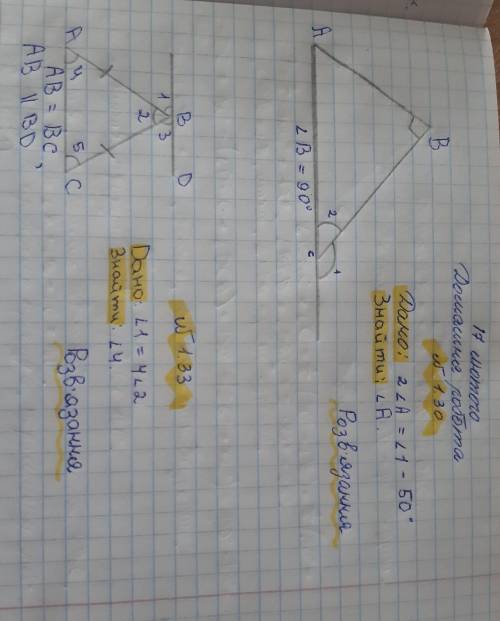 17 лютого
Домашня робота
№ 1.30
Дано: 2∠A = ∠1 - 50°
Знайти: ∠A.
Розв'язання
A
B
2
1
C
∠B = 90°
№ 1.33
Дано: ∠1 = 4∠2
Знайти: ∠4.
Розв'язання
B
D
1
2
3
A
4
5
C
AB = BC,
AB || BD